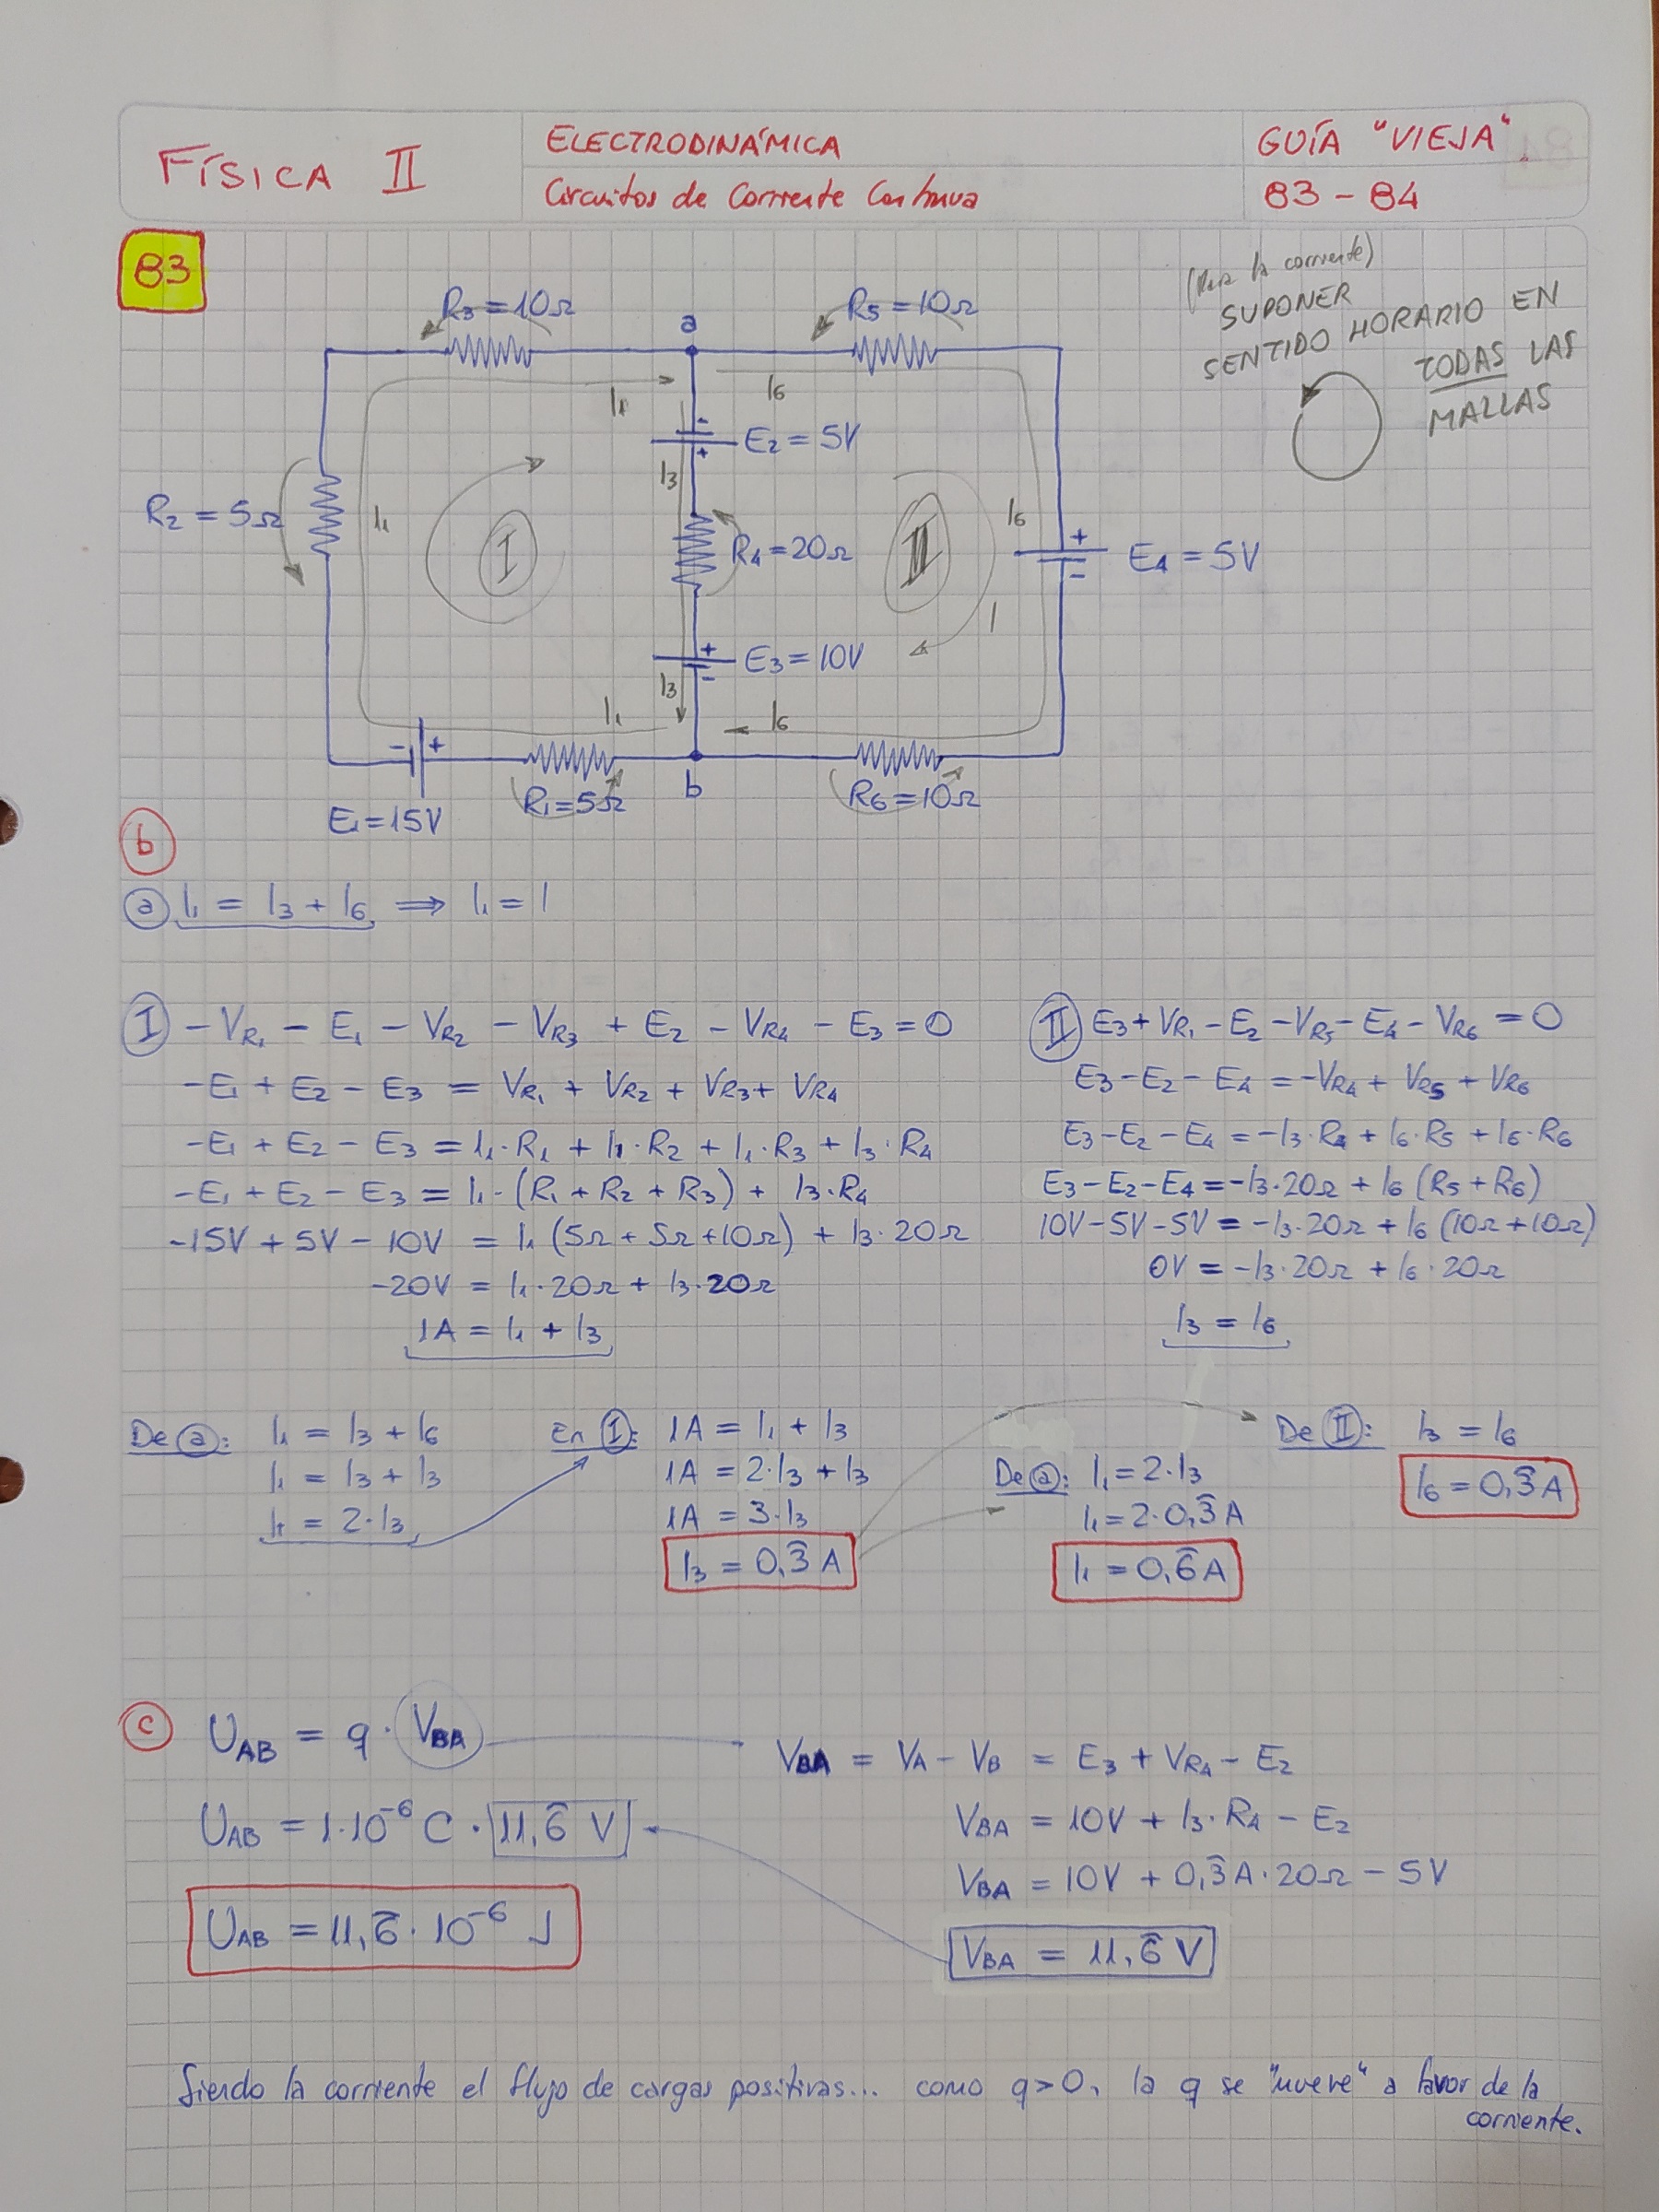 FÍSICA II
ELECTRODINÁMICA
Circuitos de Corriente Continua
GUÍA "VIEJA"
83 - 84
83
(Para la corriente)
SUPONER
SENTIDO HORARIO EN
TODAS LAS
MALLAS
R3 = 10Ω
a
R5 = 10Ω
I1
I6
-
E2 = 5V
+
I3
R2 = 5Ω
I1
I
R4 = 20Ω
II
I6
+
E4 = 5V
-
I
+
E3 = 10V
-
I3
I1
I6
- +
E1 = 15V
R1 = 5Ω
b
R6 = 10Ω
b
a I1 = I3 + I6 ⟹ I1 = I
I - VR1 - E1 - VR2 - VR3 + E2 - VR4 - E3 = 0
-E1 + E2 - E3 = VR1 + VR2 + VR3 + VR4
-E1 + E2 - E3 = I1·R1 + I1·R2 + I1·R3 + I3·R4
-E1 + E2 - E3 = I1·(R1 + R2 + R3) + I3·R4
-15V + 5V - 10V = I1 (5Ω + 5Ω + 10Ω) + I3·20Ω
-20V = I1·20Ω + I3·20Ω
1A = I1 + I3
II E3 + VR1 - E2 - VR5 - E4 - VR6 = 0
E3 - E2 - E4 = -VR4 + VR5 + VR6
E3 - E2 - E4 = -I3·R4 + I6·R5 + I6·R6
E3 - E2 - E4 = -I3·20Ω + I6 (R5 + R6)
10V - 5V - 5V = -I3·20Ω + I6 (10Ω + 10Ω)
0V = -I3·20Ω + I6·20Ω
I3 = I6
De a: I1 = I3 + I6
I1 = I3 + I3
I1 = 2·I3
En I: 1A = I1 + I3
1A = 2·I3 + I3
1A = 3·I3
I3 = 0,3̂ A
De a: I1 = 2·I3
I1 = 2·0,3̂ A
I1 = 0,6̂ A
De II: I3 = I6
I6 = 0,3̂ A
c UAB = q·VBA
UAB = 1·10⁻⁶ C · 11,6̂ V
UAB = 11,6̂·10⁻⁶ J
VBA = VA - VB = E3 + VR4 - E2
VBA = 10V + I3·R4 - E2
VBA = 10V + 0,3̂ A·20Ω - 5V
VBA = 11,6̂ V
Siendo la corriente el flujo de cargas positivas... como q>0, la q se "mueve" a favor de la
corriente.